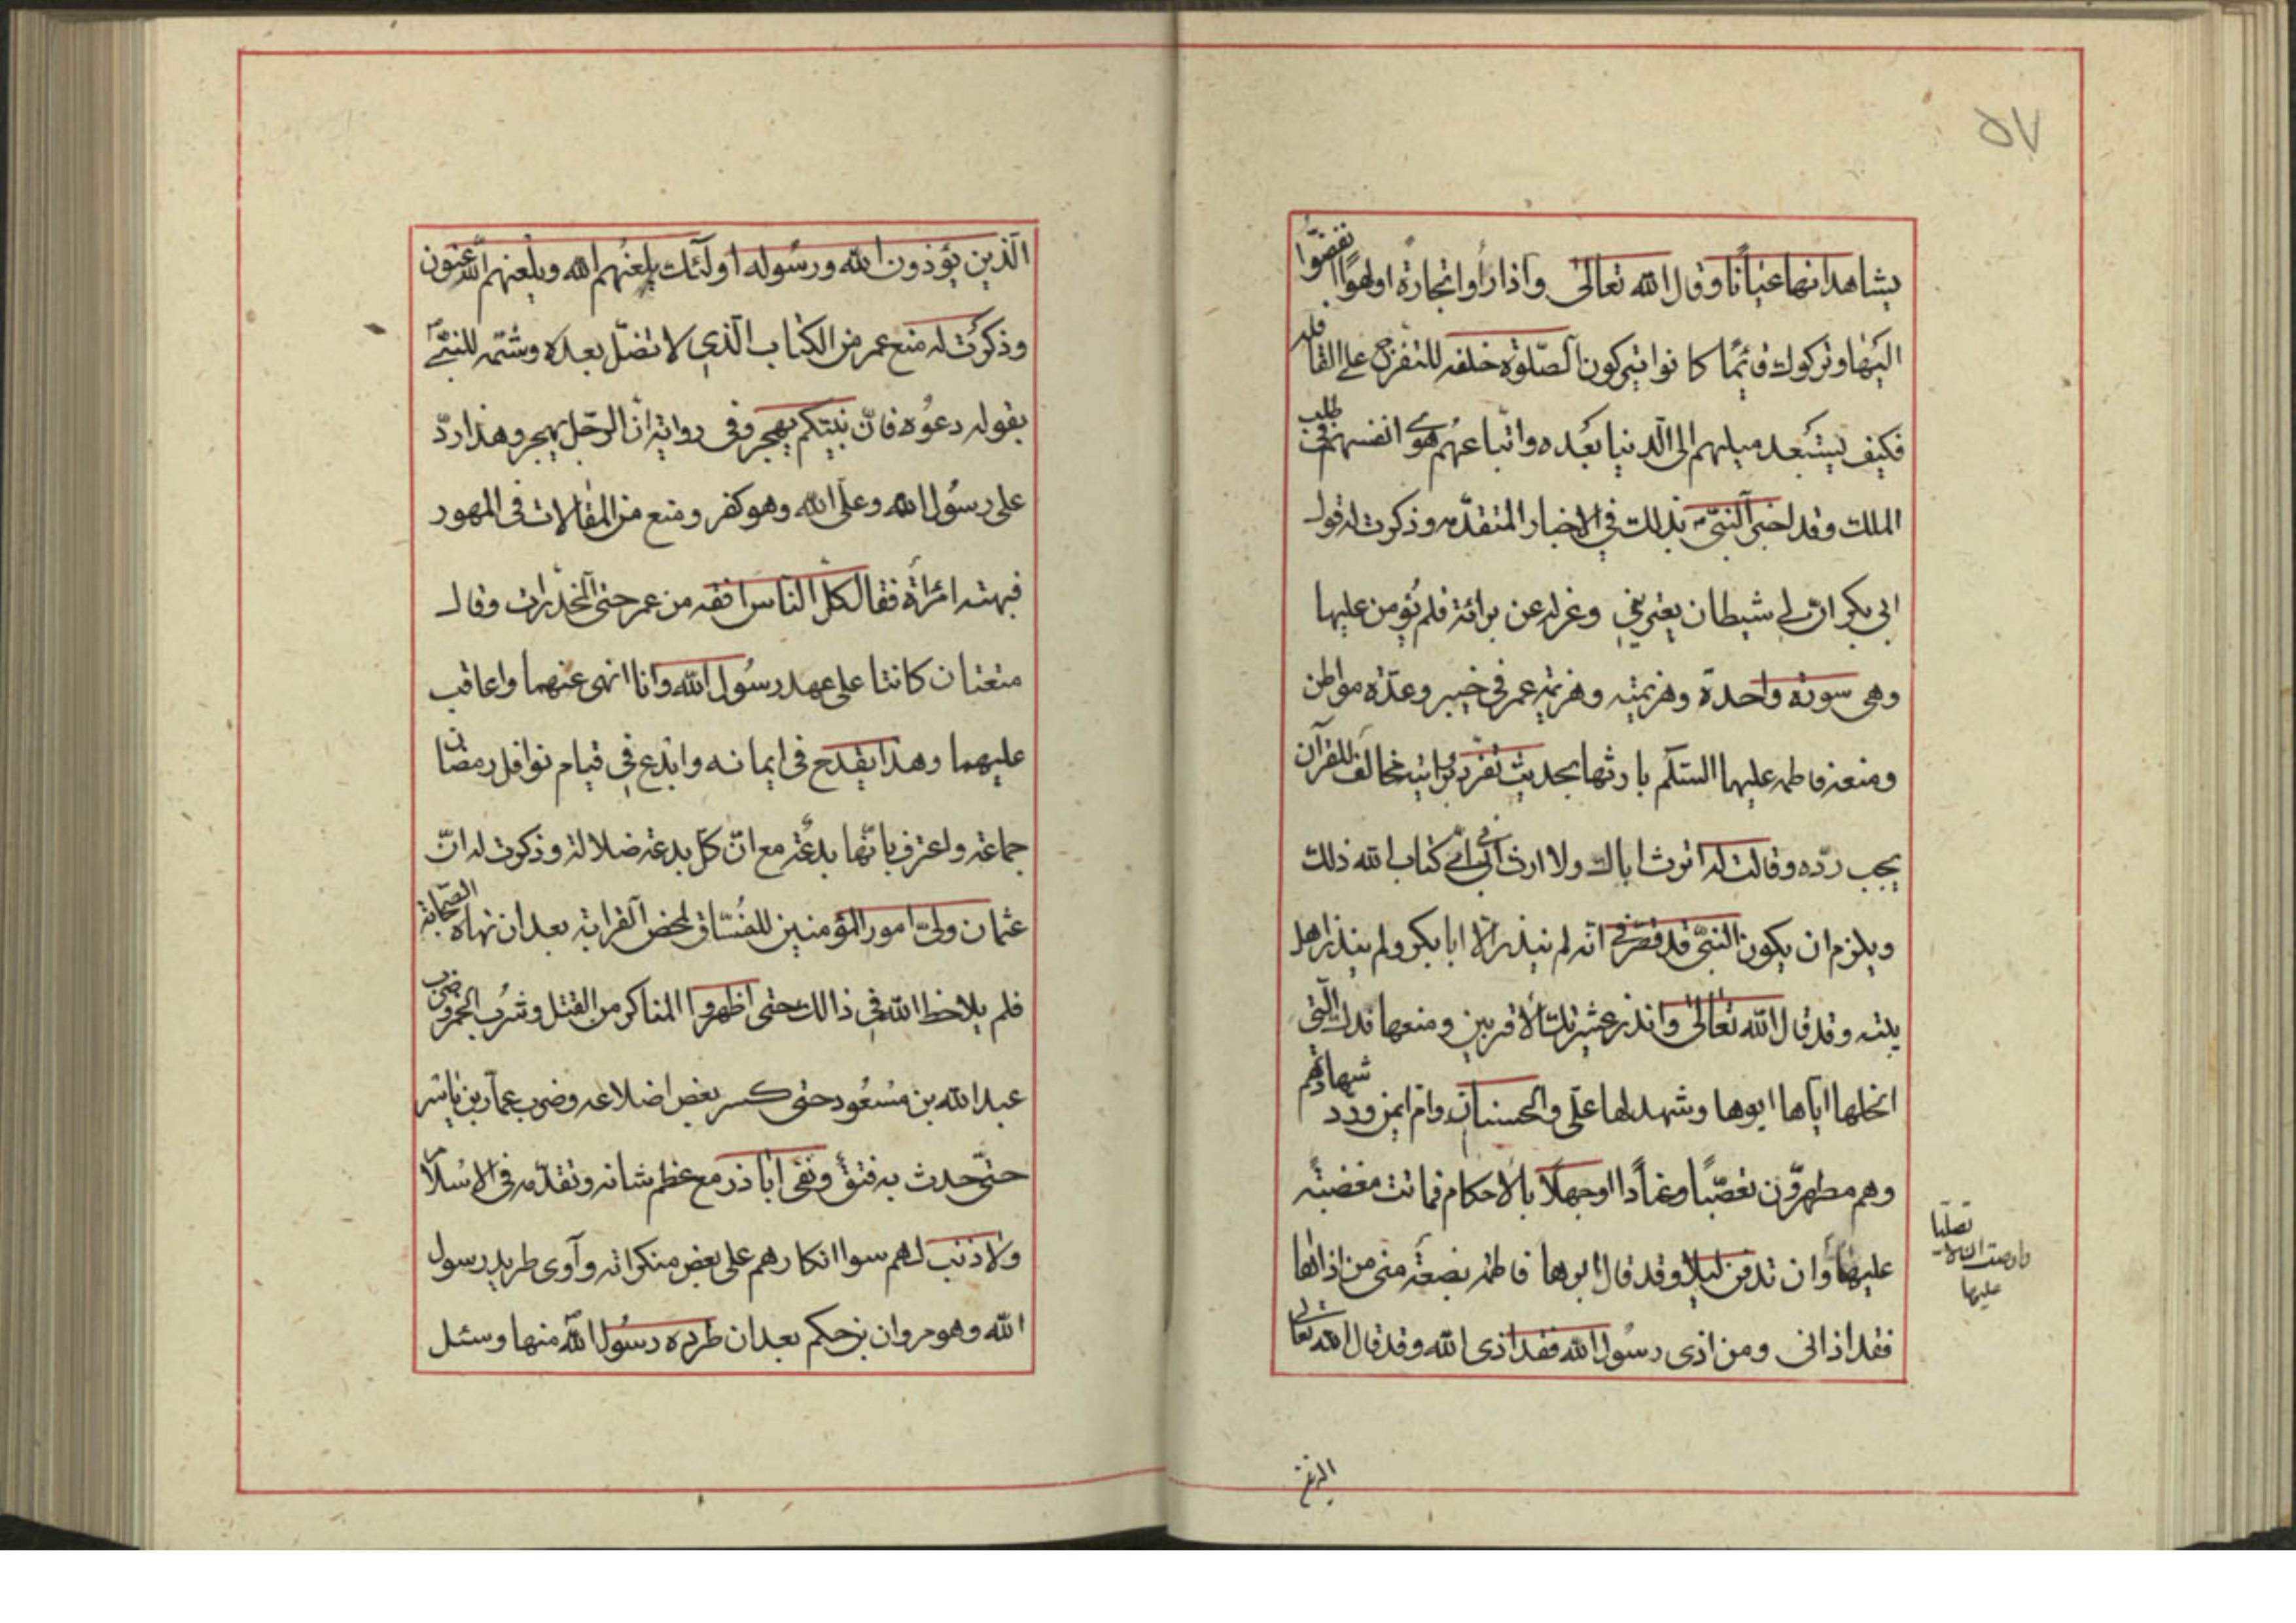 ٥٧
يشاهدانها عيانًا وقال الله تعالى واذا رأوا تجارة او لهوًا انفضّوا
اليها وتركوك قائمًا كانوا يتركون الصّلوة خلفه للتفرّج على القافله
فكيف يستبعد ميلهم الى الدنيا بعده واتباعهم هوى انفسهم في طلب
الملك وقد اخبر النبيّ بذلك في الاخبار المتقدّمه وذكرت له قول
ابى بكر انّ لى شيطان يعترينى وعزله عن برائة فلم يؤمن عليها
وهى سورة واحدة وهزيمته وهزيمة عمر فى خيبر وعدّة مواطن
ومنعه فاطمه عليها السّلام بارثها بحديث تفرّد برواية مخالف للقرآن
يجب ردّه وقالت له اترث اباك ولا ارث ابى أفى كتاب الله ذلك
ويلزم ان يكون النبىّ قد قصّر فى انّه لم ينذر الّا ابا بكر ولم ينذر اهل
بيته وقد قال الله تعالى وانذر عشيرتك الاقربين ومنعها فدك الّتى
انحلها ايّاها ابوها وشهد لها علّى والحسنان وامّ ايمن وردّ شهادتهم
وهم مطهرّون تعصّبًا وعنادًا او جهلًا بالاحكام فماتت مغضبته
عليهما وان تدفن ليلا وقد قال ابوها فاطمة بضعة منى من اذاها
فقد اذانى ومن اذى رسول الله فقد اذى الله وقد قال الله تعالى
عليها
الّذين يؤذون الله ورسوله اولئك يلعنهم الله ويلعنهم اللّاعنون
وذكرت له منع عمر من الكتاب الّذى لا تضلّ بعده وشتمه للنبىّ
بقوله دعوه فانّ نبيّكم يهجر وفى رواية انّ الرّجل يهجر وهذا ردّ
على رسول الله وعلى الله وهو كفر ومنع من المقالات فى المهور
فبهته امرأة فقال كلّ النّاس افقه من عمر حتى المخدّرات وقال
متعتان كانتا على عهد رسول الله وانا انهى عنهما واعاقب
عليهما وهذا يقدح فى ايمانه وابدع فى قيام نوافل رمضان
جماعة واعترف بانّها بدعة مع انّ كلّ بدعة ضلالة وذكرت له انّ
عثمان ولىّ امور المؤمنين للفسّاق لمحض القرابة بعد ان نهاه الصّحابة
فلم يلاحظ الله فى ذالك حتى اظهروا المناكر من القتل وشرب الخمر وضرب
عبد الله بن مسعود حتى كسر بعض اضلاعه وضرب عمّار بن ياسر
حتّى حدث به فتق ونفى اباذر مع عظم شانه وتقدّمه فى الاسلام
ولا ذنب لهم سوا انكارهم على بعض منكراته وآوى طريد رسول
الله وهو مروان بن حكم بعد ان طرده رسول الله منها وسئل